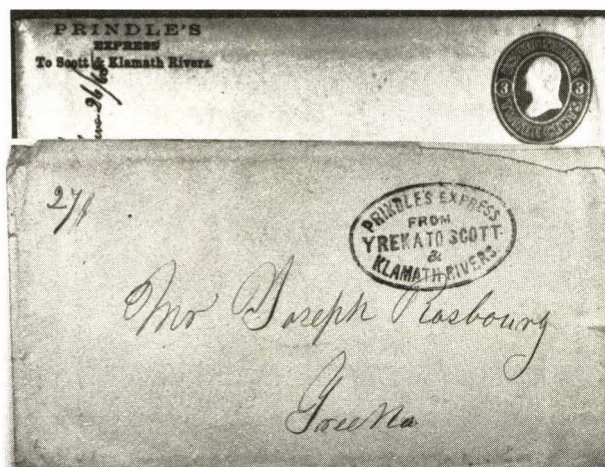 PRINDLE'S
EXPRESS
To Scott & Klamath Rivers.
26/65
3
3
27/
PRINDLE'S EXPRESS
FROM
YREKA TO SCOTT
&
KLAMATH RIVERS
Mr Joseph Rasbourg